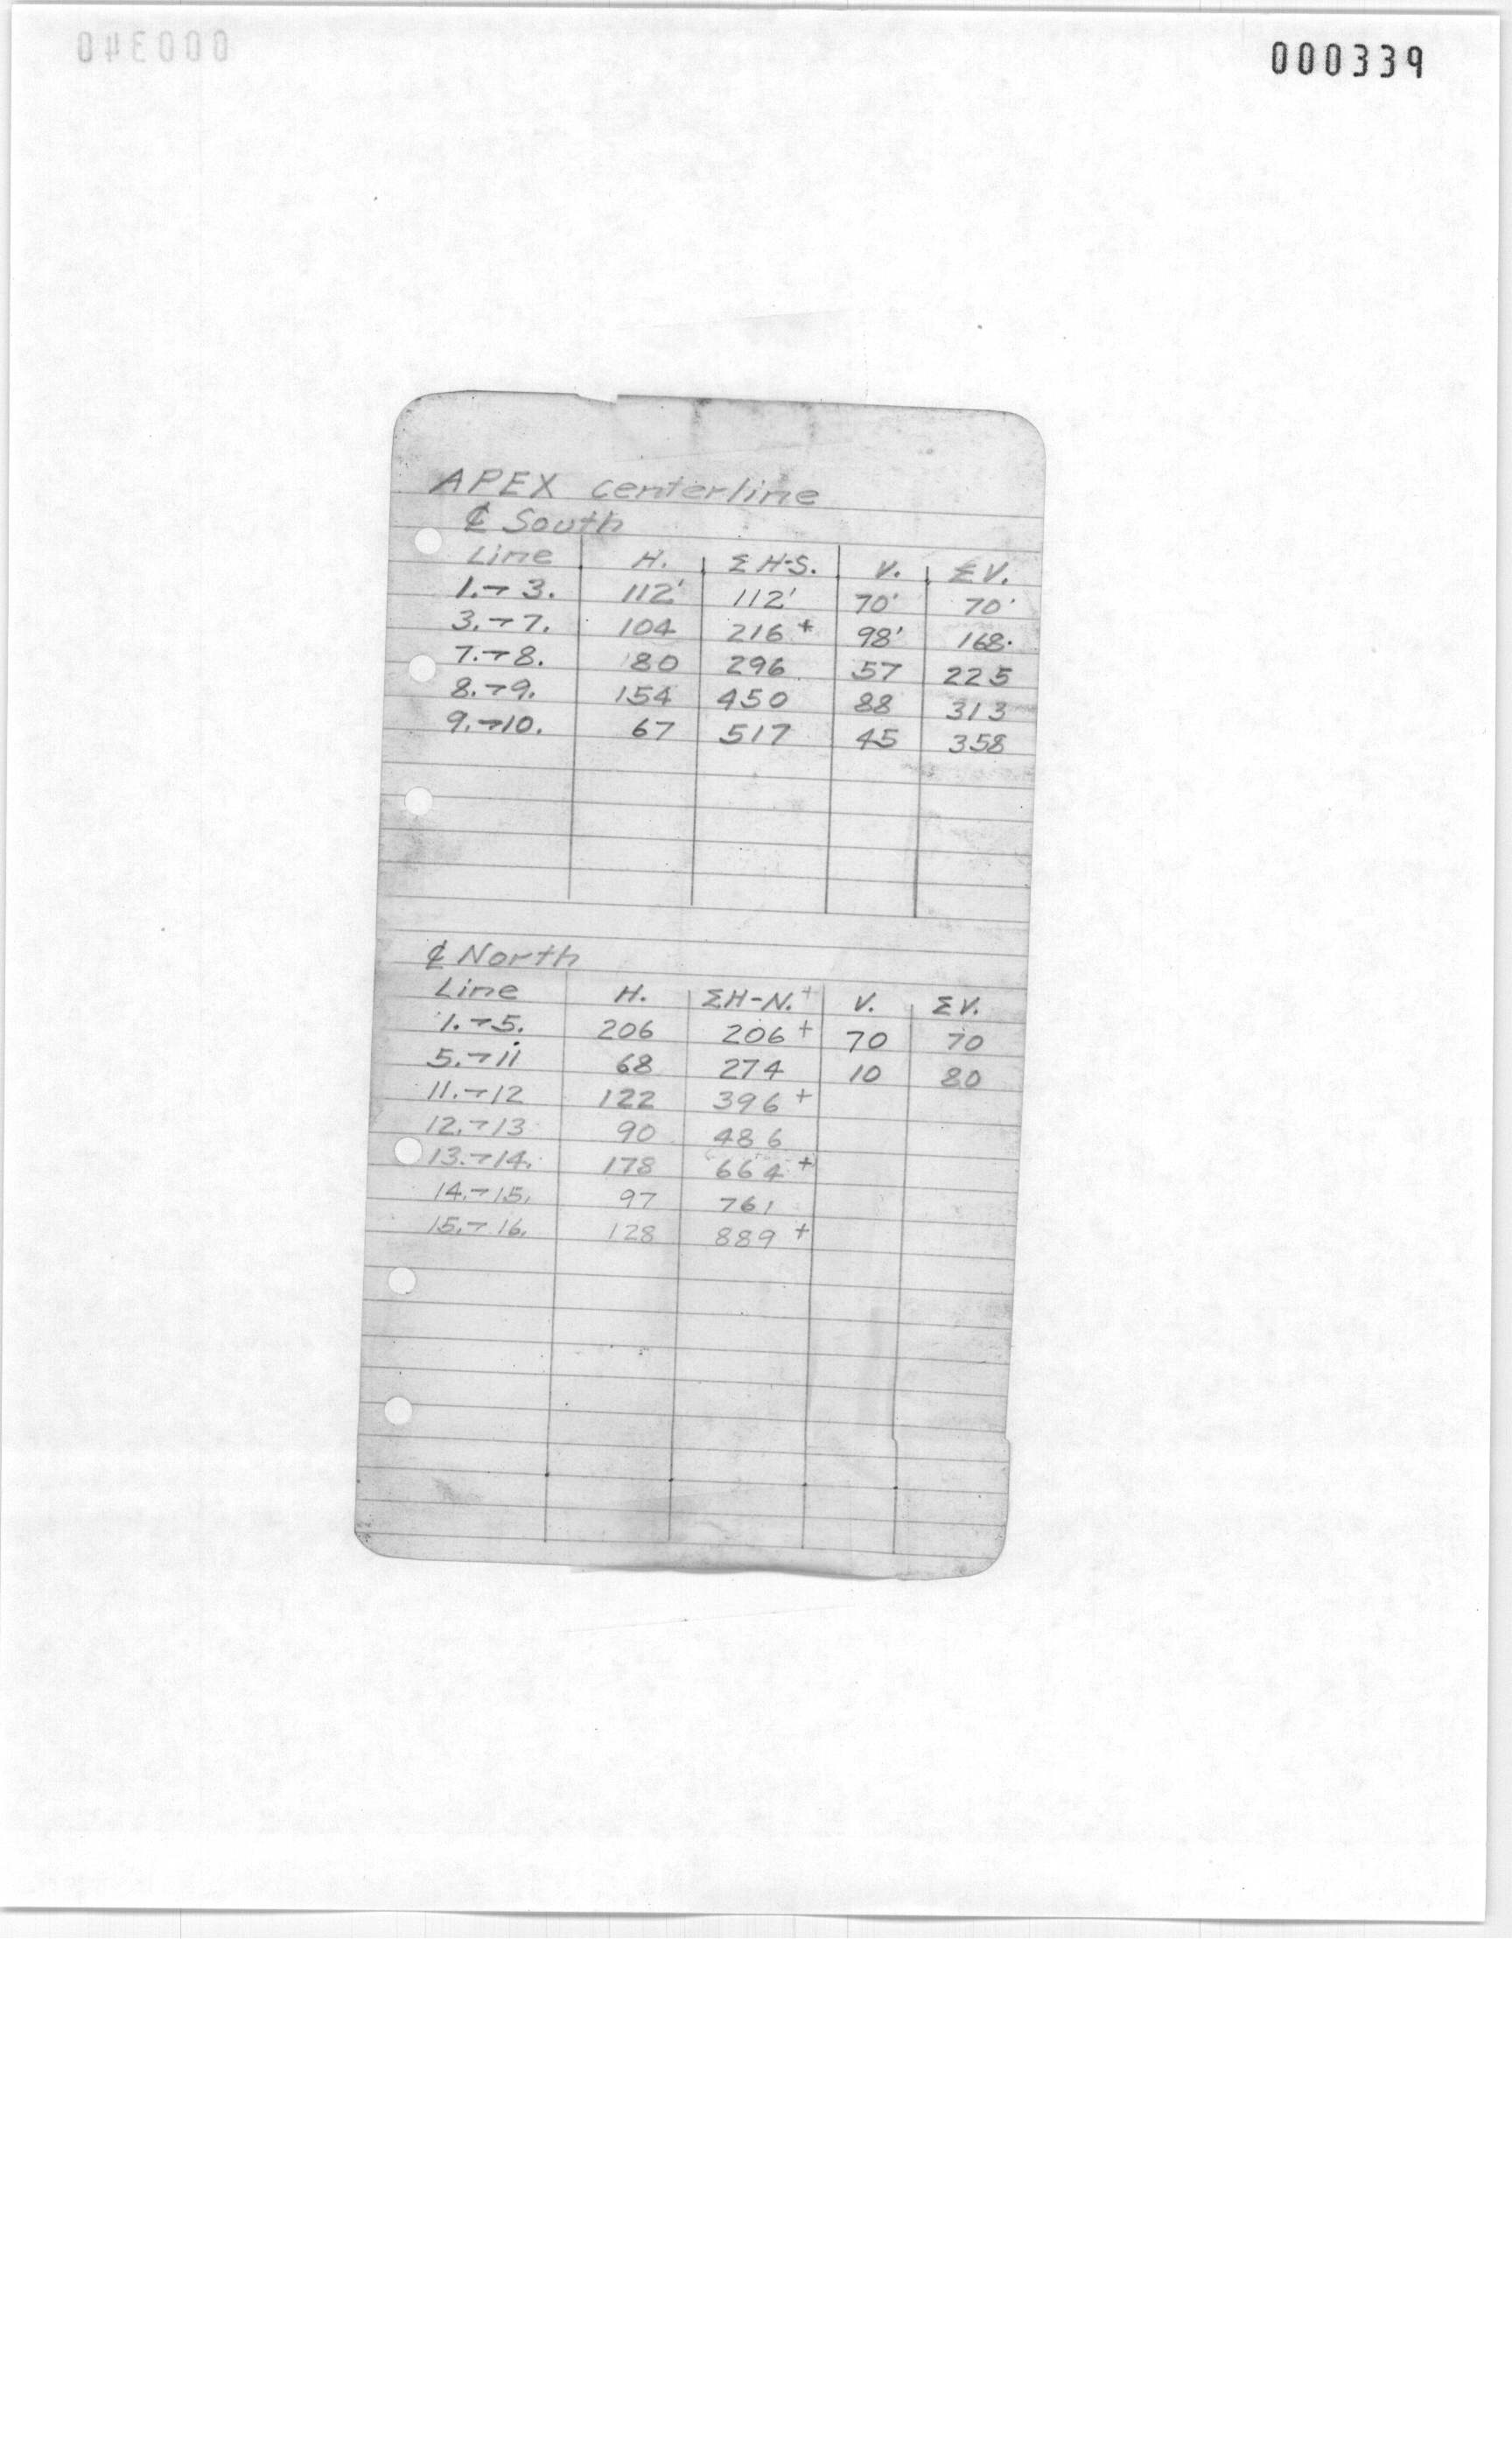 000340
000339
APEX centerline
℄ South
Line H. Σ H-S. V. ΣV.
1.→3. 112' 112' 70' 70'
3.→7. 104 216+ 98' 168.
7.→8. 80 296 57 225
8.→9. 154 450 88 313
9.→10. 67 517 45 358
℄ North
Line H. ΣH-N.+ V. ΣV.
1.→5. 206 206+ 70 70
5.→11 68 274 10 80
11.→12 122 396+
12.→13 90 486
13.→14. 178 664+
14.→15. 97 761
15.→16. 128 889+